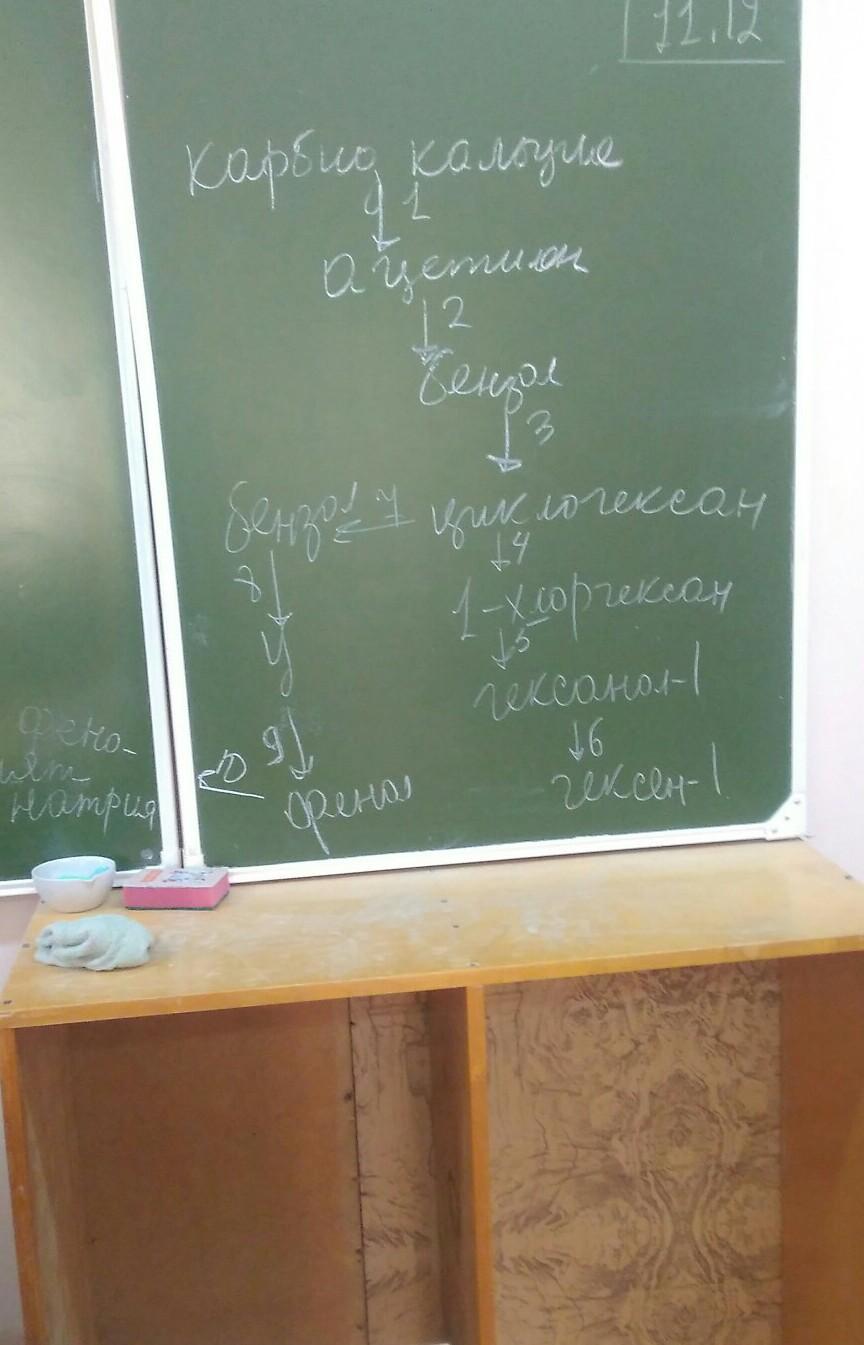 11.12
карбид кальция
1
ацетилен
2
бензол
3
бензол 7 циклогексан
4
8
1-хлоргексан
5
У
гексанол-1
6
9
10
фенол
гексен-1
фено-
лят
натрия